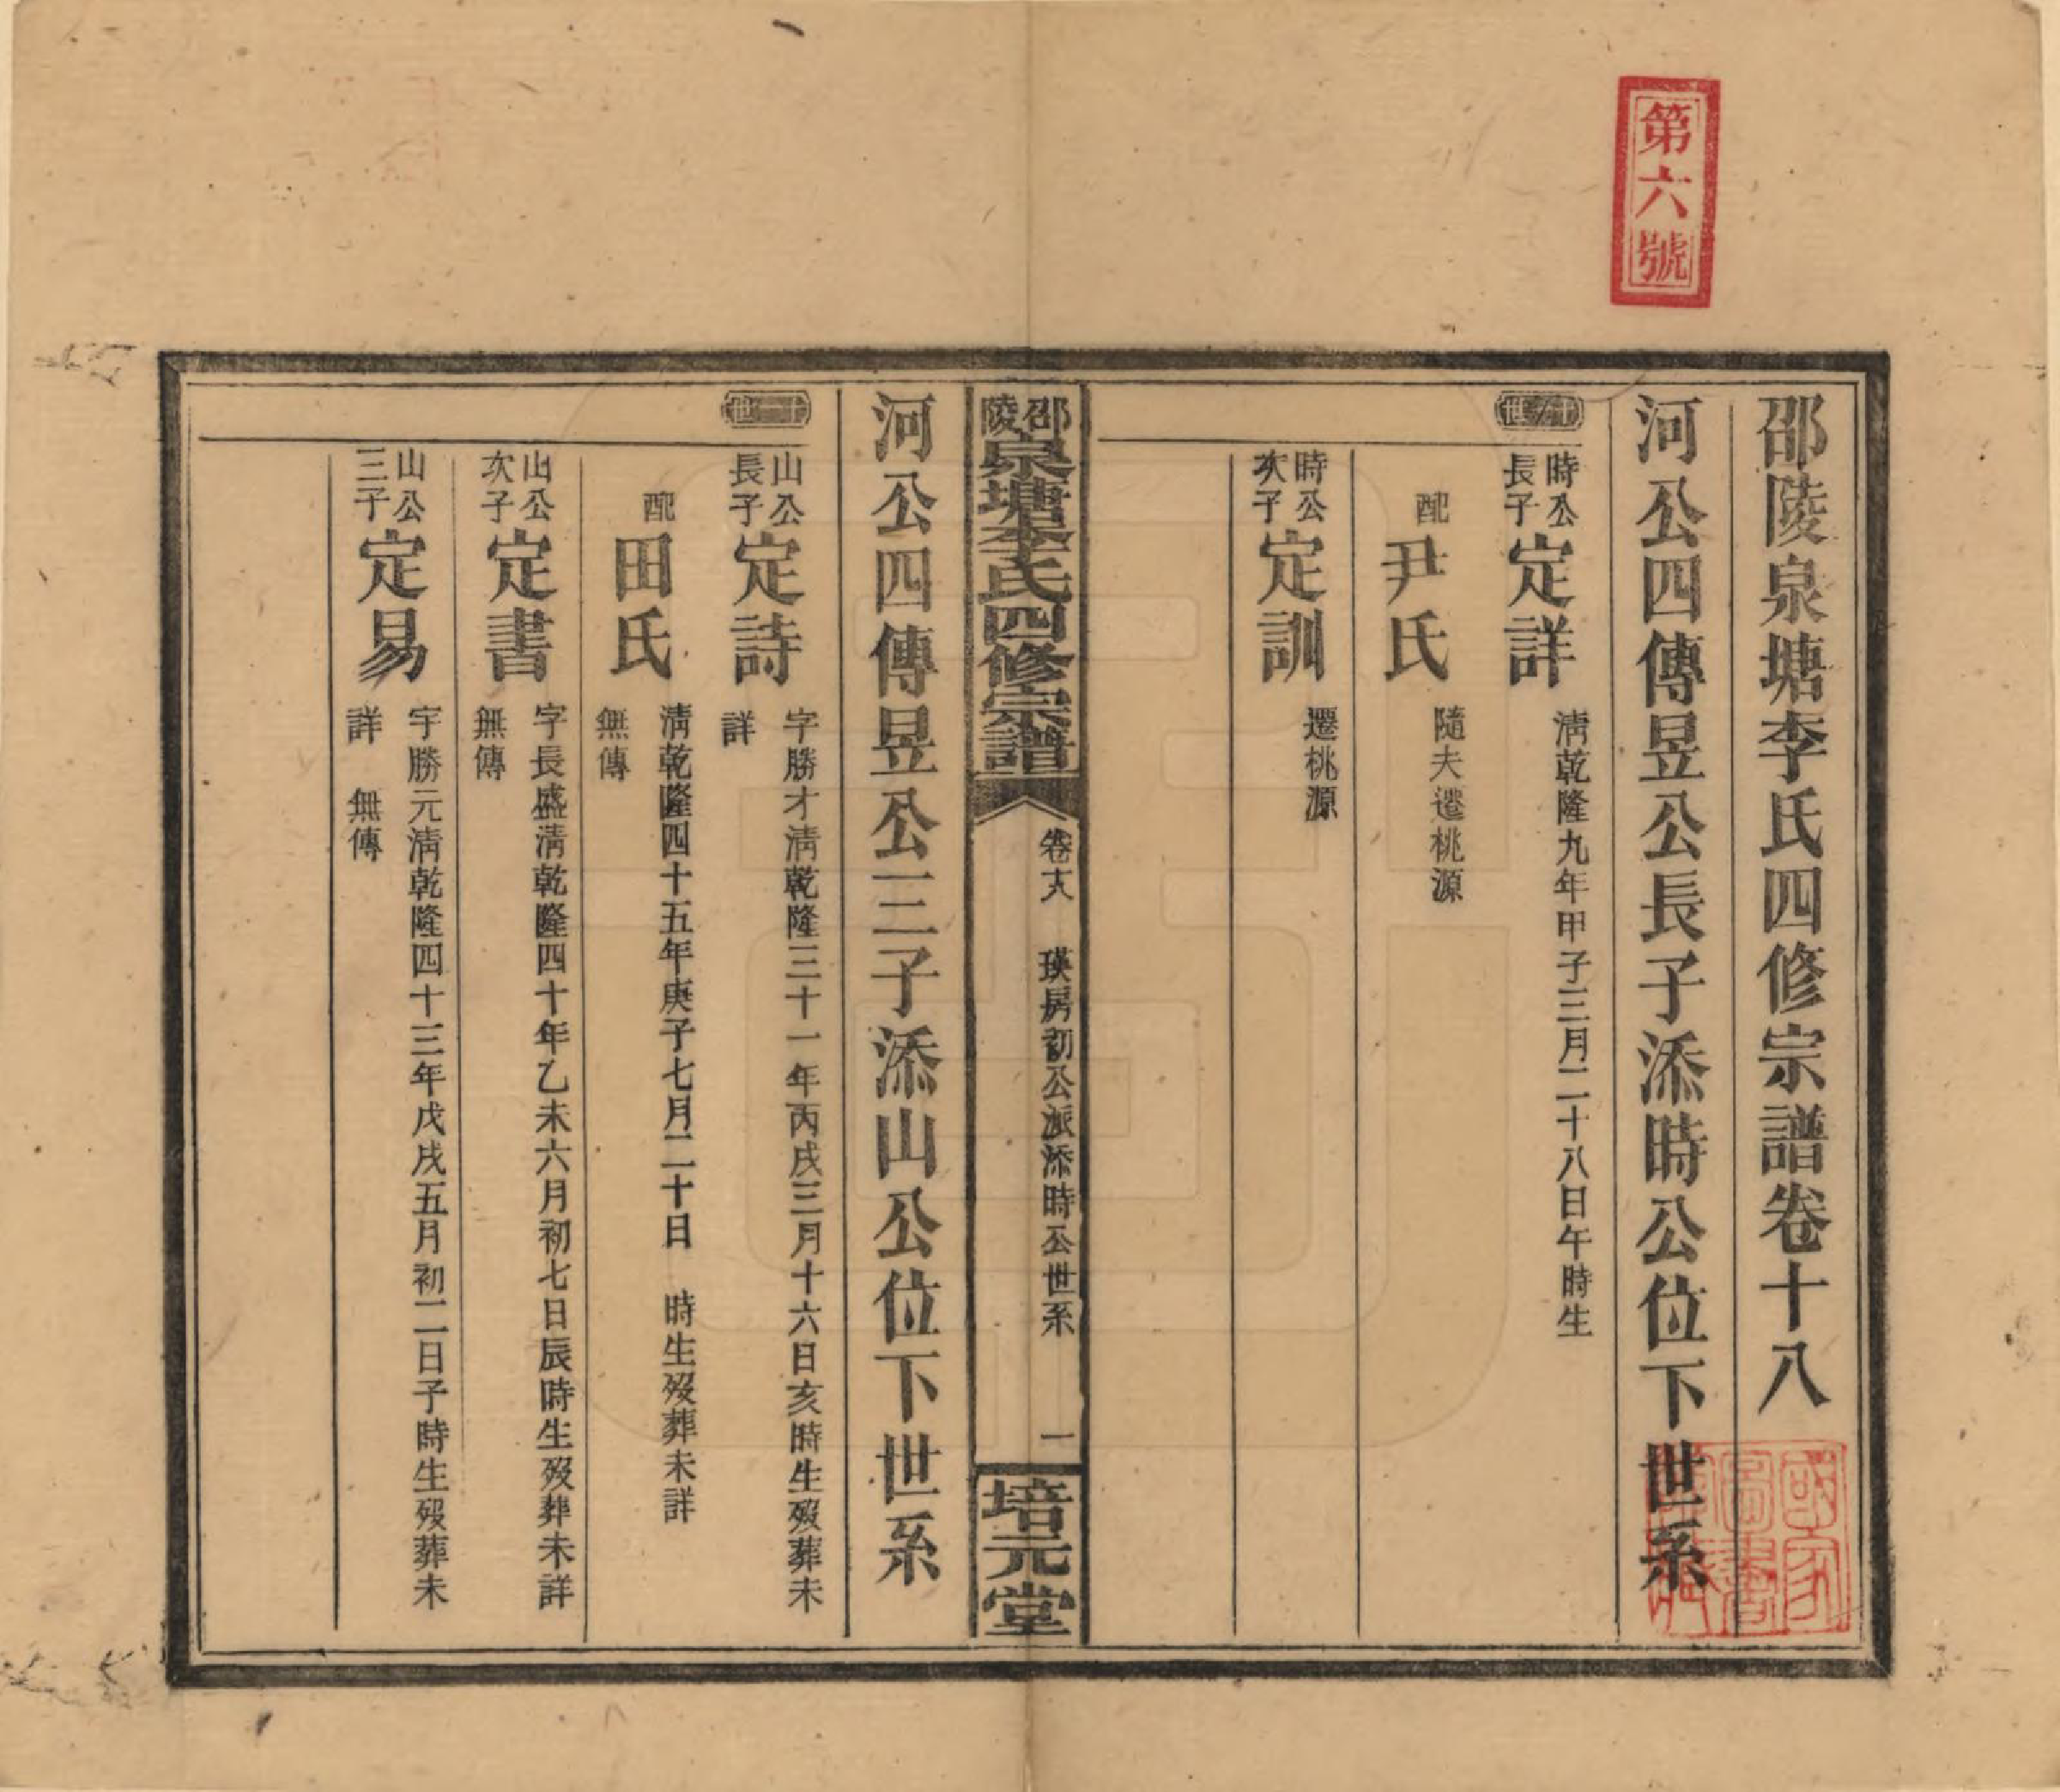 第六號
邵陵泉塘李氏四修宗譜卷十八
河公四傳昱公長子添時公位下世系
時公長子 定詳 淸乾隆九年甲子三月二十八日午時生
配 尹氏 隨夫遷桃源
時公次子 定訓 遷桃源
邵陵泉塘李氏四修宗譜 卷十八 瑛房初公派添時公世系 一 培元堂
河公四傳昱公三子添山公位下世系
山公長子 定詩 字勝才淸乾隆三十一年丙戌三月十六日亥時生歿葬未詳
配 田氏 淸乾隆四十五年庚子七月二十日 時生歿葬未詳 無傳
山公次子 定書 字長盛淸乾隆四十年乙未六月初七日辰時生歿葬未詳 無傳
山公三子 定易 字勝元淸乾隆四十三年戊戌五月初二日子時生歿葬未詳 無傳